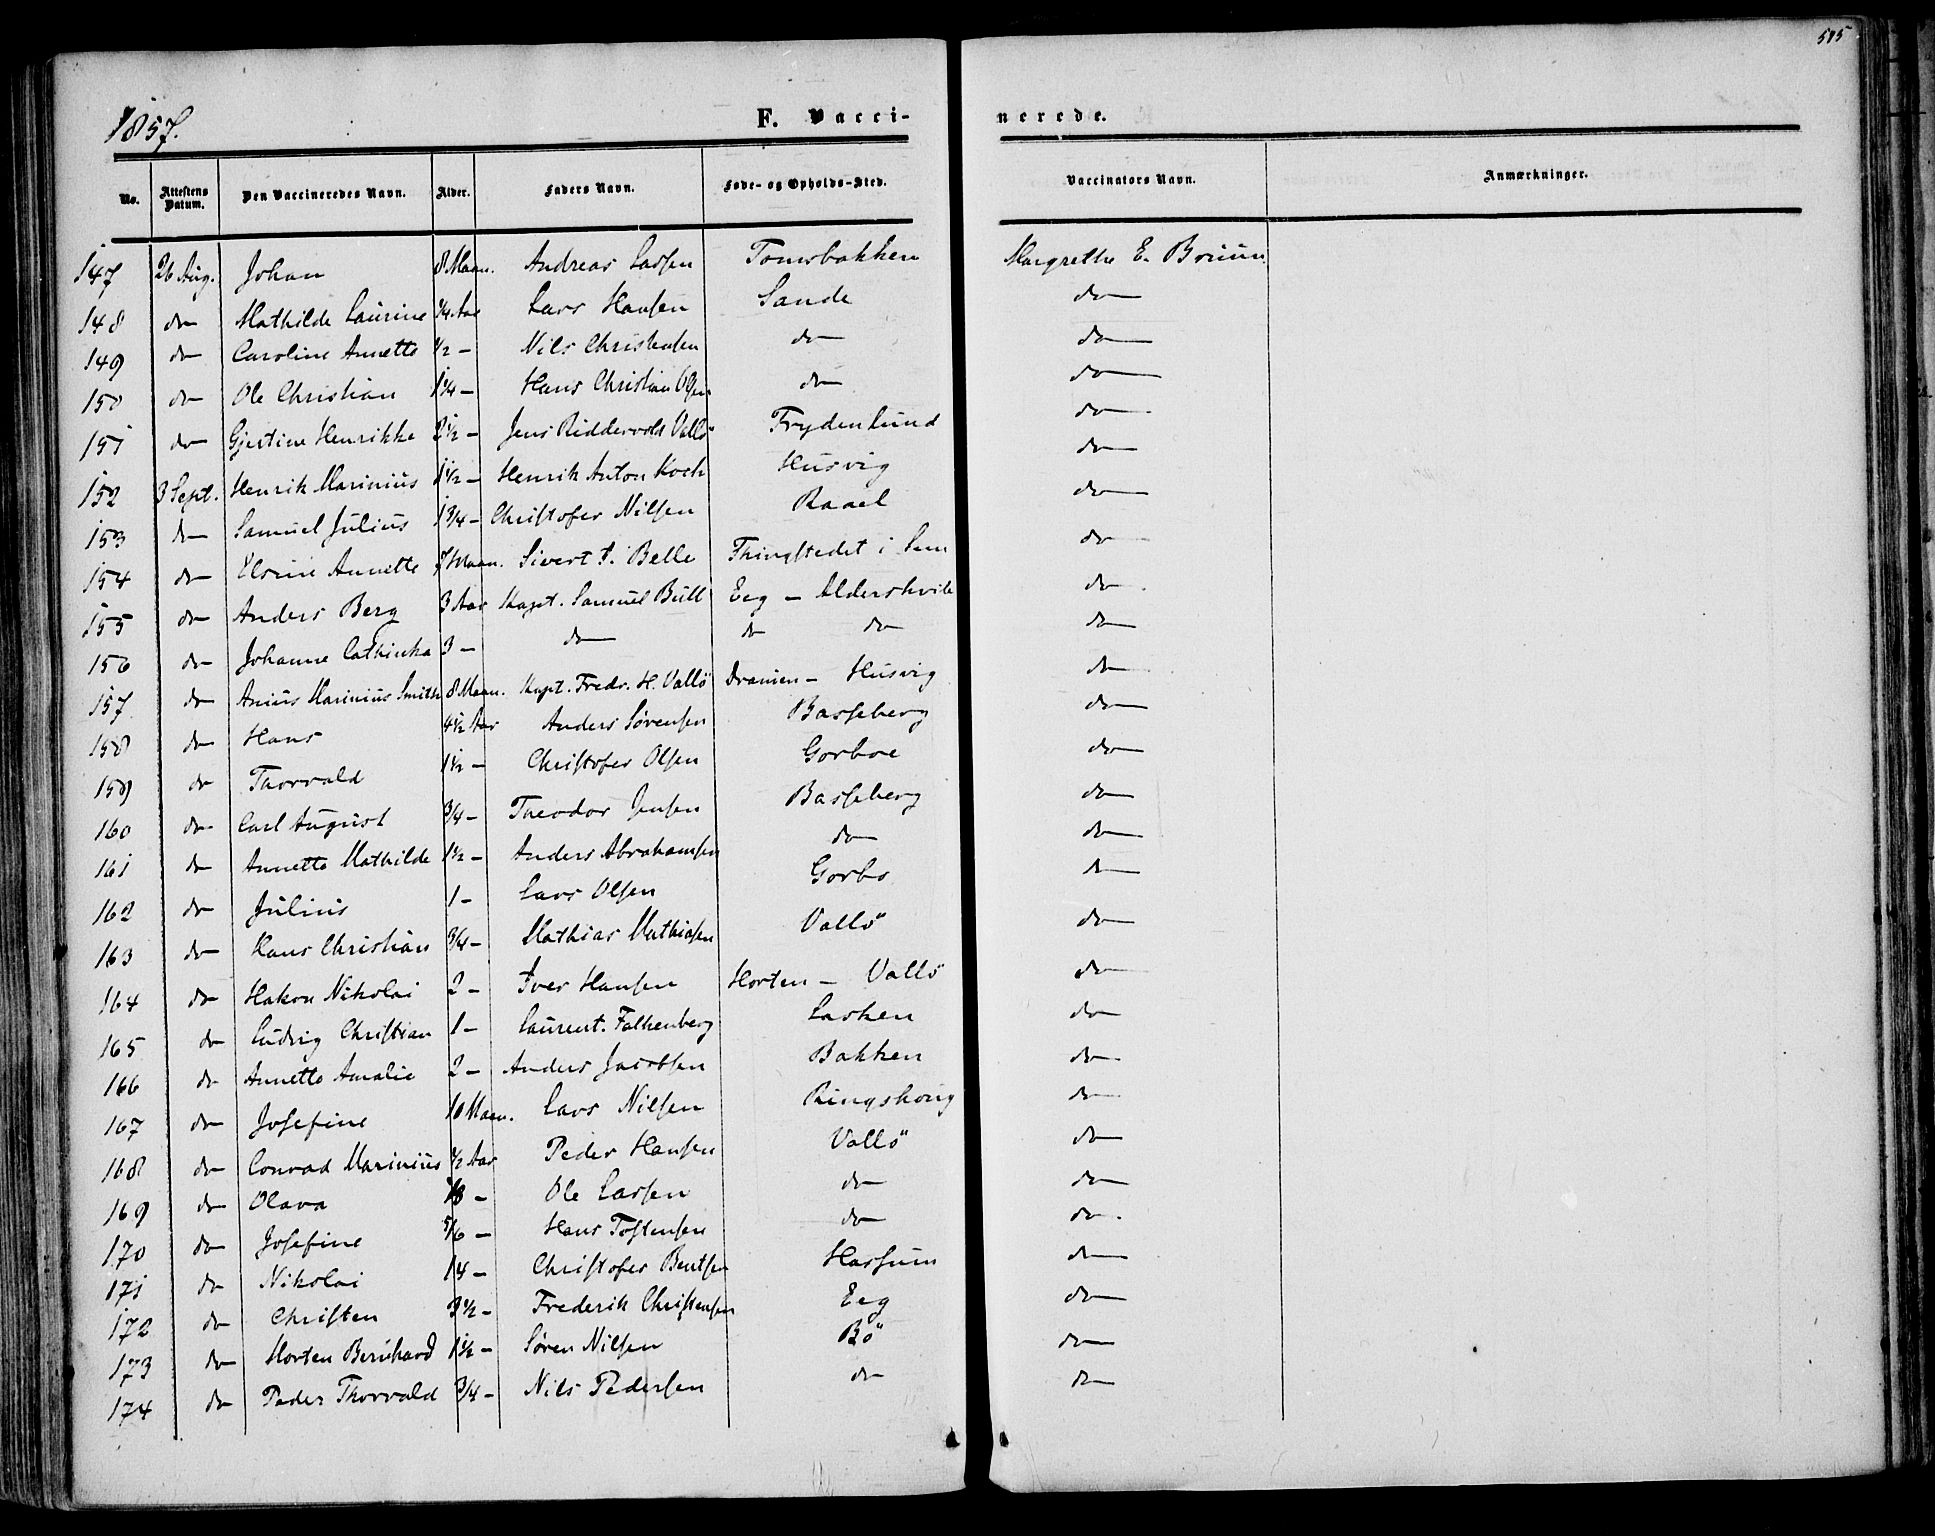 515
1857.
F. Vaccinerede.
No. Attestens Datum. Den Vaccineredes Navn. Alder. Faders Navn. Føde- og Opholds-Sted. Vaccinators Navn. Anmærkninger.
147 26 Aug. Johan 8 Maan. Andreas Larsen Tomsbakken Margrethe E. Bruun
148 do Mathilde Laurine ¾ Aar Lars Hansen Sande do
149 do Caroline Annette ½ - Nils Christensen do do
150 do Ole Christian 1¼ - Hans Christian Olsen do do
151 do Gjertine Henrikke 2½ - Jens Riddervold Vallö Frydenlund do
152 3 Sept. Henrik Marinius 1½ - Henrik Anton Koch Husvig do
153 do Samuel Julius 1¾ - Christofer Nilsen Raael do
154 do Elvine Annette 7 Maan. Sivert S. Belle Thingstedet i Sem do
155 do Anders Berg 3 Aar Kapt. Samuel Bull Eeg - Aldershvile do
156 do Johanne Cathinka 3 - do do do do
157 do Anius Marinius Smith 8 Maan. Kapt. Fredr. H. Vallö Dramen - Husvig do
158 do Hans 4½ Aar Anders Sørensen Basseberg do
159 do Thorvald 1½ - Christofer Olsen Gorboe do
160 do Carl August ¾ - Theodor Jensen Basseberg do
161 do Annette Mathilde 1½ - Anders Abrahamsen do do
162 do Julius 1 - Lars Olsen Gorbo do
163 do Hans Christian ¾ - Mathias Mathiasen Vallö do
164 do Hakon Nikolai 2 - Iver Hansen Horten - Vallö do
165 do Ludvig Christian 1 - Laurent. Falkenberg Lasken do
166 do Annette Amalie 2 - Anders Jacobsen Bakken do
167 do Josefine 10 Maan. Lars Nilsen Ringshoug do
168 do Conrad Marinius ½ Aar Peder Hansen Vallö do
169 do Olava 13 - Ole Larsen do do
170 do Josefine 5/6 - Hans Tostensen do do
171 do Nikolai 14 - Christofer Bentsen Hassum do
172 do Christen 3½ - Frederik Christensen Eeg do
173 do Morten Bernhard 1½ - Søren Nilsen Bö do
174 do Peder Thorvald ¾ - Nils Pedersen do do